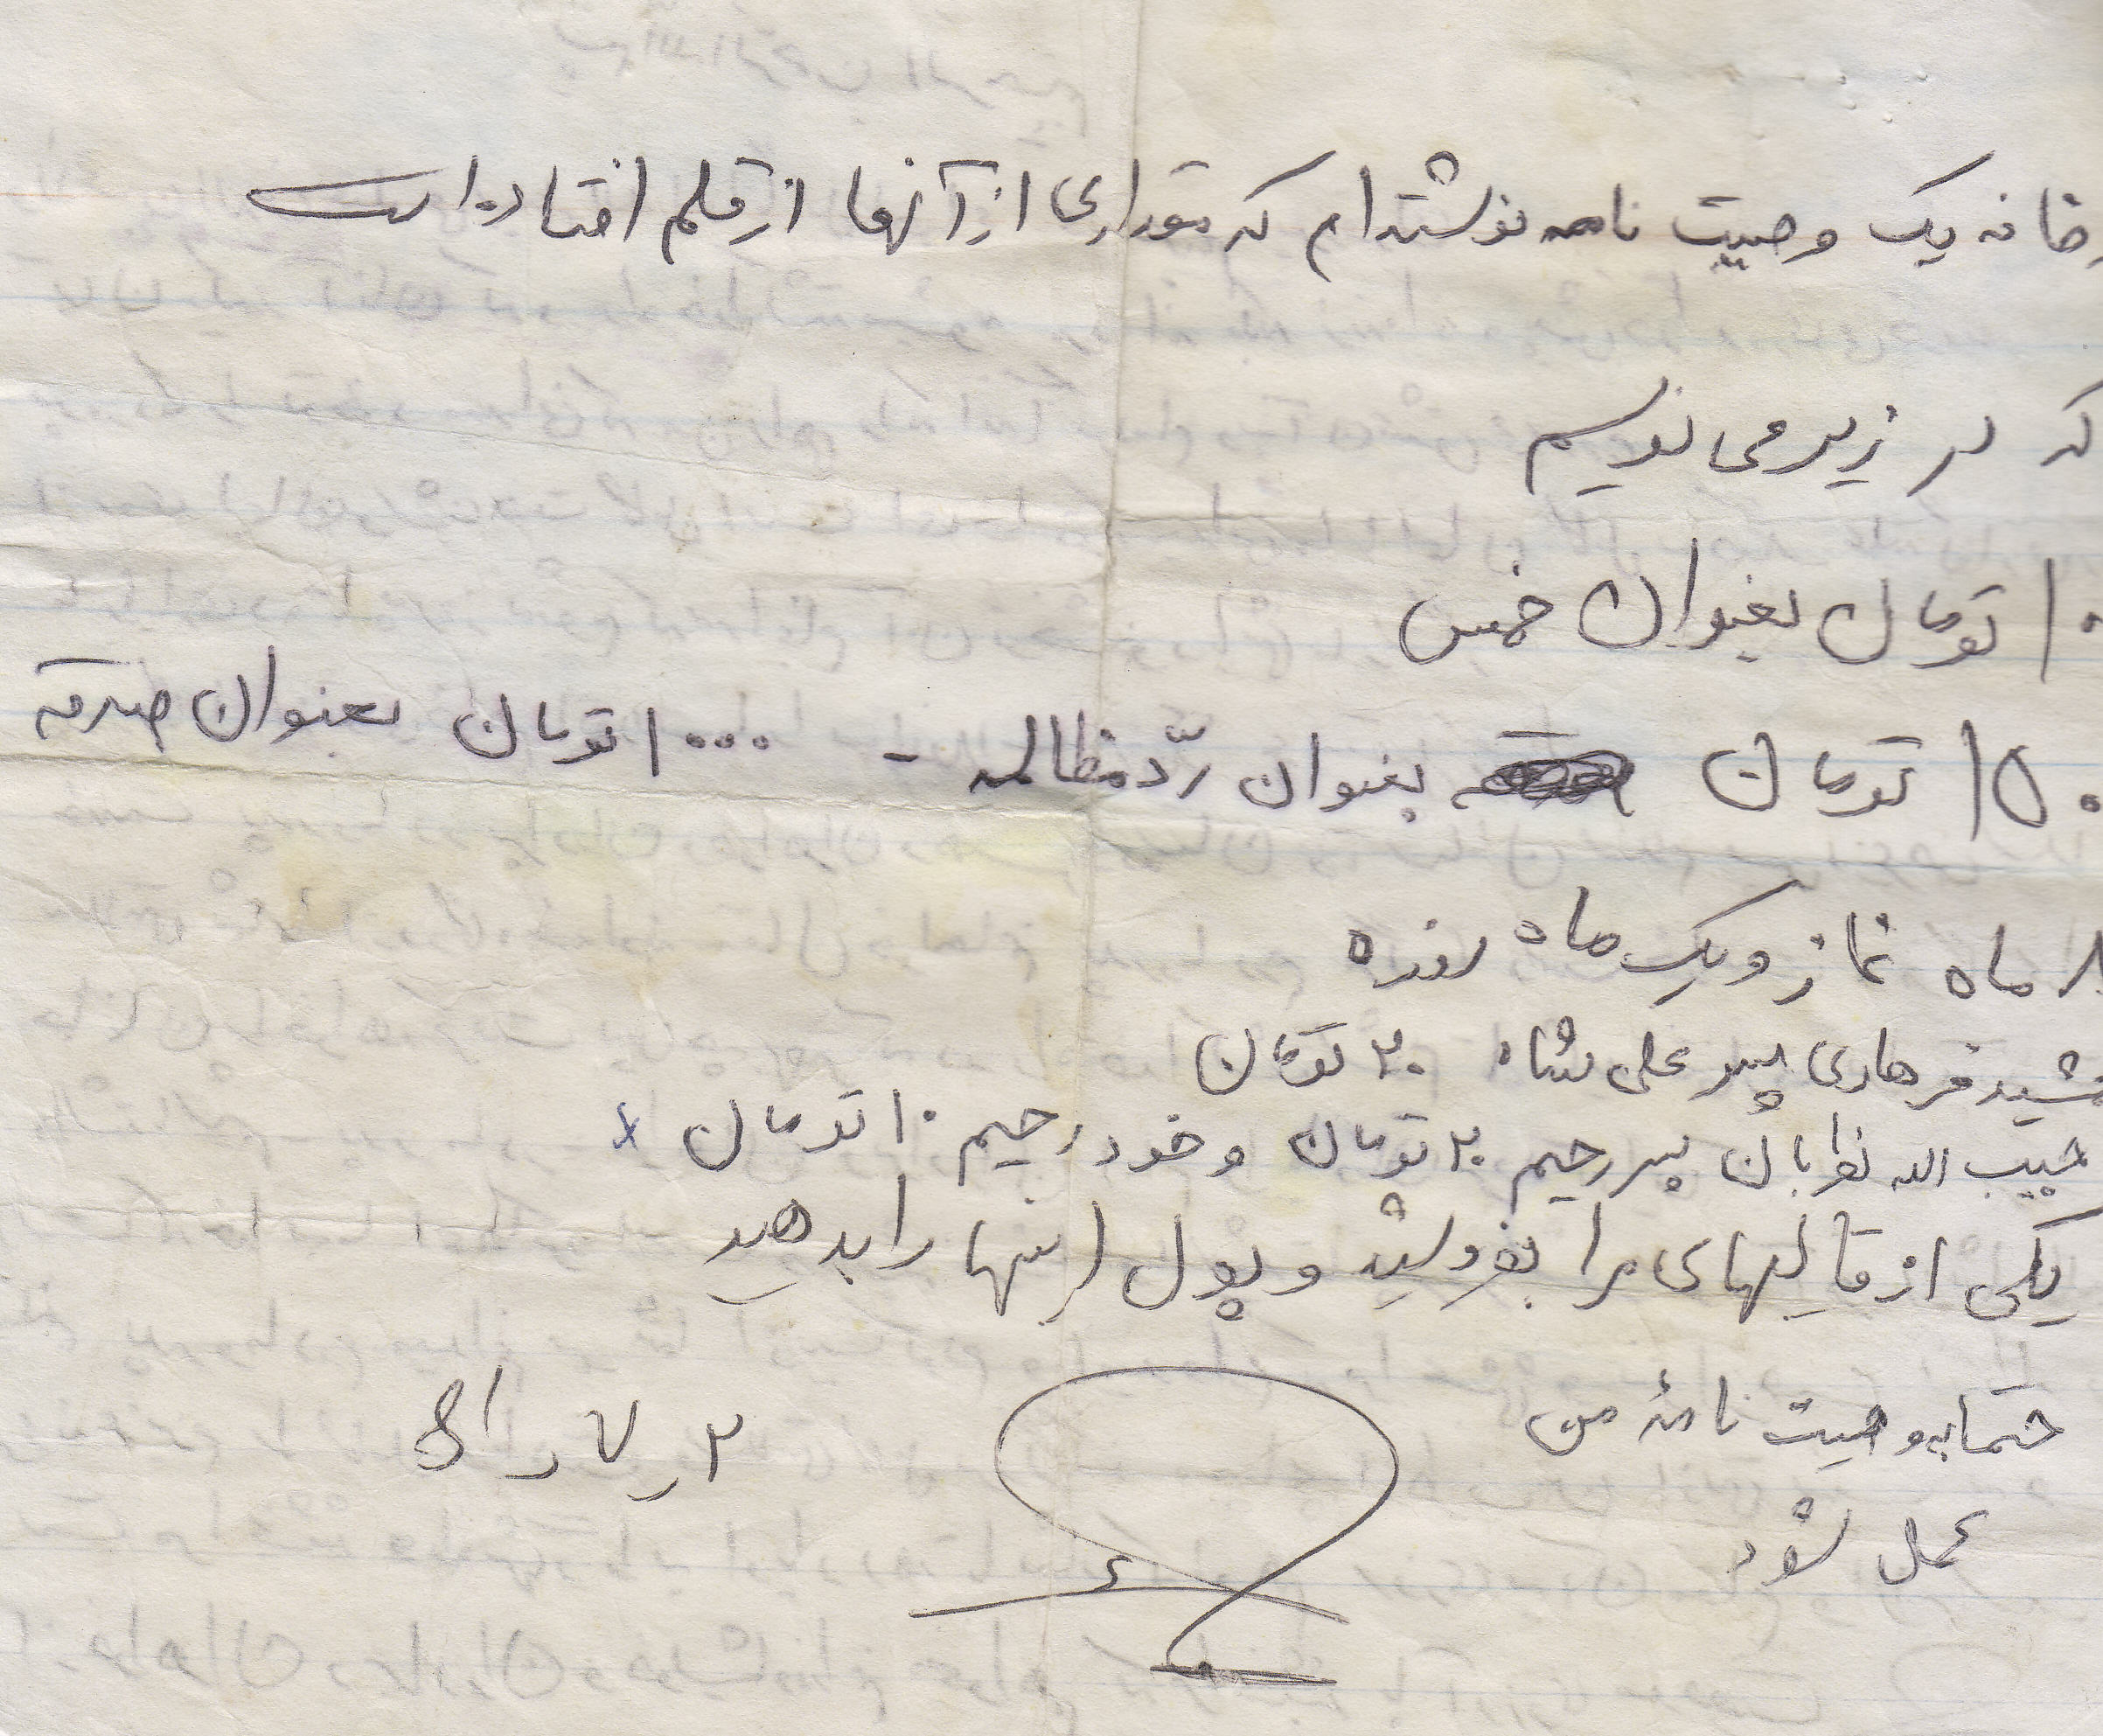 در خانه یک وصیت نامه نوشته‌ام که مقداری از آنها از قلم افتاده است
که در زیر می نویسم
تومان بعنوان خمس
تومان بعنوان ردّ مظالمه - ۱۰۰۰ تومان بعنوان صدقه
ماه نماز و یک ماه روزه
فرهادی پسر علی شاه ۲۰ تومان
حبیب الله پسر رحیم ۲۰ تومان و خود رحیم ۱۰ تومان x
یکی از قالیهای مرا بفروشید و پول اینها را بدهید
حتما به وصیت نامهٔ من
عمل شود